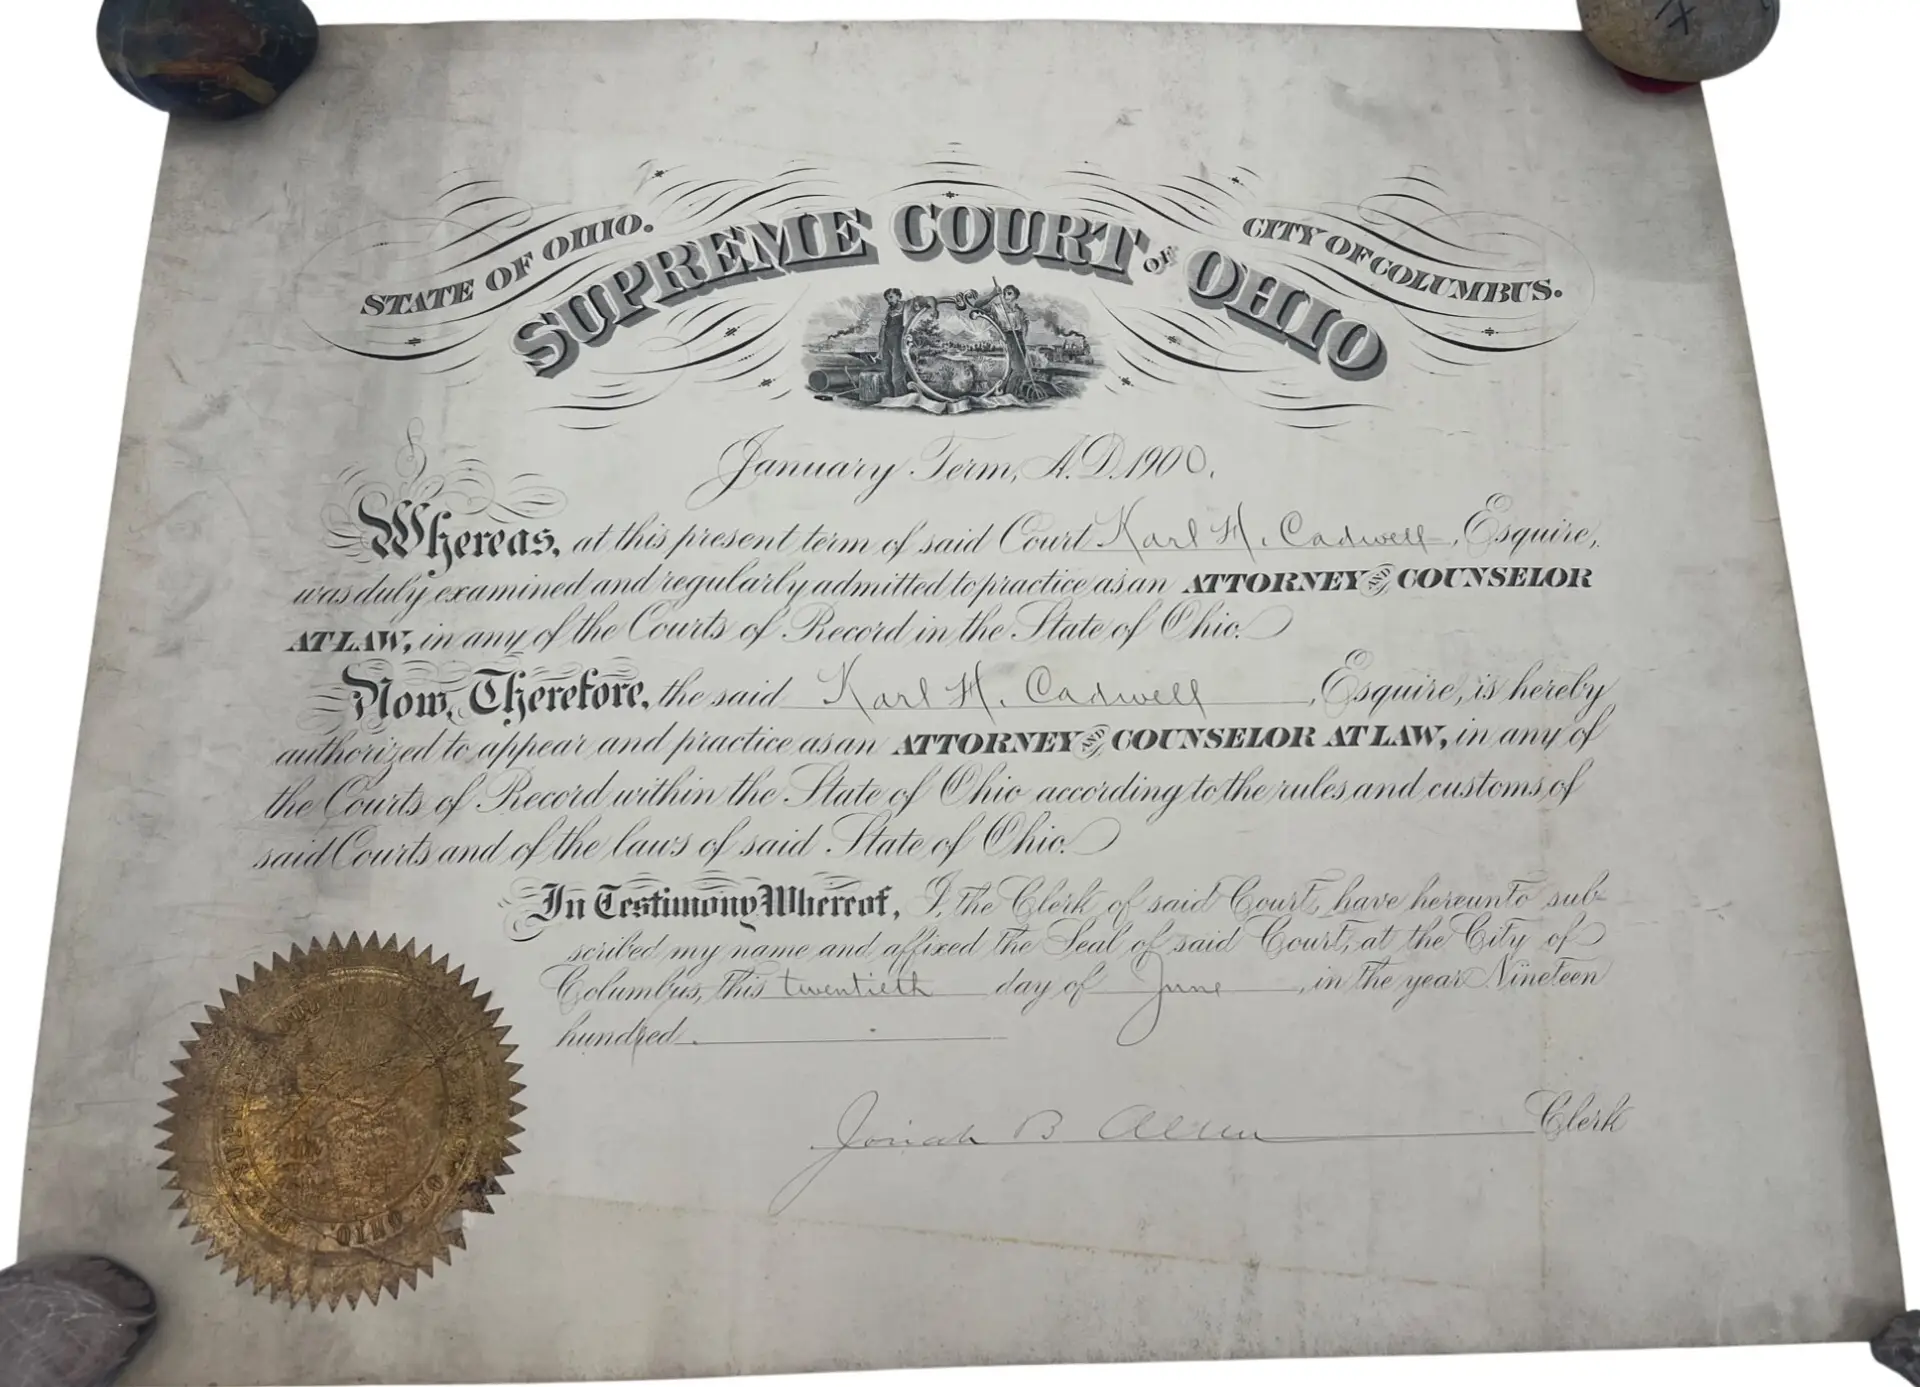 STATE OF OHIO.
SUPREME COURT OF OHIO
CITY OF COLUMBUS.
January Term, A.D. 1900.
Whereas, at this present term of said Court Karl H. Cadwell, Esquire,
was duly examined and regularly admitted to practice as an ATTORNEY AND COUNSELOR
AT LAW, in any of the Courts of Record in the State of Ohio.
Now, Therefore, the said Karl H. Cadwell, Esquire, is hereby
authorized to appear and practice as an ATTORNEY AND COUNSELOR AT LAW, in any of
the Courts of Record within the State of Ohio according to the rules and customs of
said Courts and of the laws of said State of Ohio.
In Testimony Whereof, I, the Clerk of said Court, have hereunto sub-
scribed my name and affixed the Seal of said Court, at the City of
Columbus, this twentieth day of June, in the year Nineteen
hundred.
Josiah B Allen Clerk
OF OHIO